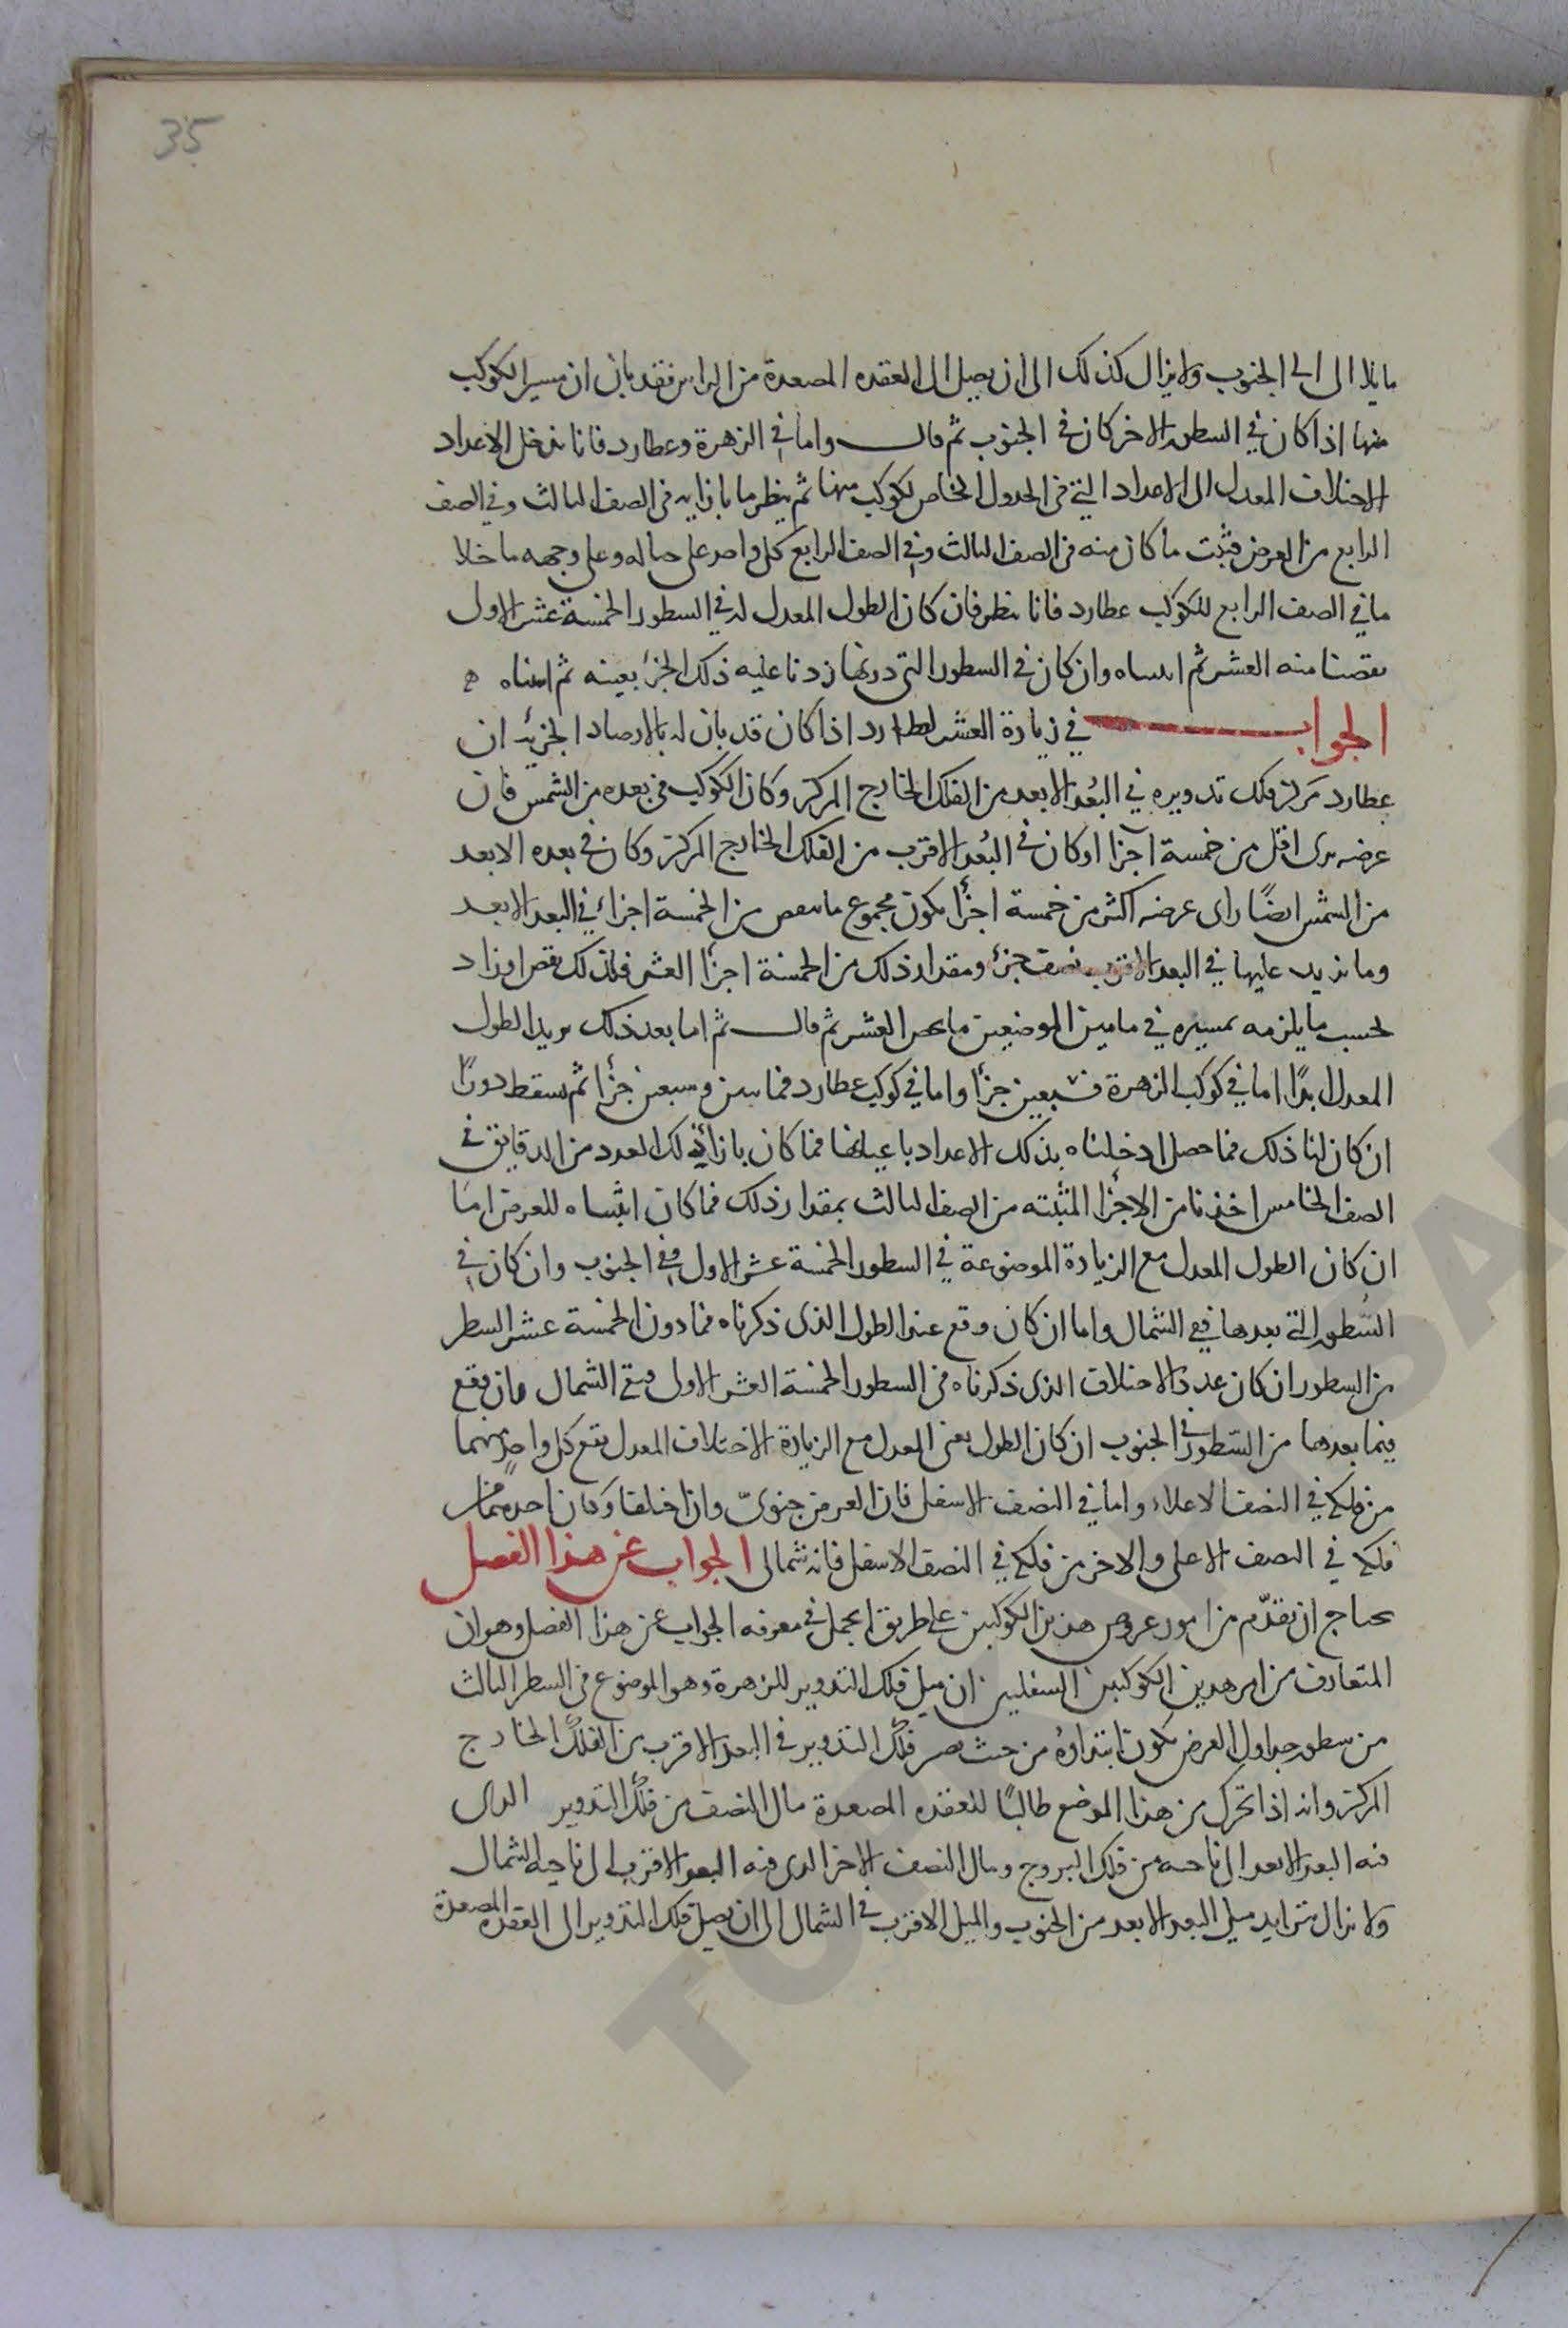 35
مايلا الى الى الجنوب ولا يزال كذلك الى ان يصل الى العقده المصعدة من الراس فقد بان ان مسير الكوكب
منها اذا كان في السطور الاخر كان في الجنوب ثم قال واما في الزهرة وعطارد فانا ندخل الاعداد
الاختلاف المعدل الى الاعداد التي في الجدول الخاص لكوكب منها ثم ينظر ما بازايه في الصف الثالث وفي الصف
الرابع من العرض فيثبت ما كان منه في الصف الثالث وفي الصف الرابع كل واحد على حياله وعلى وجهه ما خلا
ما في الصف الرابع للكوكب عطارد فانا ننظر فان كان الطول المعدل له في السطور الخمسة عشر الاول
نقصنا منه العشر ثم اثبتناه وان كان في السطور التي دونها زدنا عليه ذلك الجزء بعينه ثم اثبتناه ه
الجواب في زيادة العشر لعطارد اذا كان قد بان له بالارصاد الجزئية ان
عطارد مركز فلك تدويره في البُعد الابعد من الفلك الخارج المركز وكان الكوكب في بعده من الشمس فان
عرضه يرى اقل من خمسة اجزا او كان في البُعد الاقرب من الفلك الخارج المركز وكان في بعده الابعد
من الشمس ايضًا راى عرضه اكثر من خمسة اجزأ يكون مجموع ما ينقص من الخمسة اجزاء في البعد الابعد
وما يزيد عليها في البعد الاقرب نصف جزء ومقدار ذلك من الخمسة اجزأ العشر فلذلك نقص او زاد
لحسب ما يلزمه بمسيره في ما بين الموضعين ما يخص العشر ثم قال ثم اما بعد ذلك يريد الطول
المعدل ابدًا اما في كوكب الزهرة فتسعين جزأ واما في كوكب عطارد فمايتين وسبعين جزأ ثم يسقط دورًا
ان كان لنا ذلك فما حصل ادخلناه بذلك الاعداد باعيانها فما كان بازأ ذلك العدد من الدقايق في
الصف الخامس اخذنا من الاجزأ المثبتة من الصف الثالث بمقدار ذلك فما كان اثبتناه للعرض اما
ان كان الطول المعدل مع الزيادة الموضوعة في السطور الخمسة عشر الاول ففي الجنوب وان كان في
السُطور التي بعدها ففي الشمال واما ان كان وقع عند الطول الذى ذكرناه فما دون الخمسة عشر السطر
من السطور ان كان عدد الاختلاف الذى ذكرناه في السطور الخمسة العشر الاول ففي الشمال وان وقع
فيما بعدها من السّطور ففي الجنوب ان كان الطول يعنى المعدل مع الزيادة الاختلاف المعدل يقع كل واحدٍ منهما
من فلكه في النصف الاعلاء واما في النصف الاسفل فان العرض جنوبىّ وان اختلفا وكان احدهما من
فلكه في النصف الاعلى والاخر من فلكه في النصف الاسفل فانه شمالى الجواب عن هذا الفصل
يحتاج ان نقدّم من امور عروض هذين الكوكبين على طريق المجمل في معرفة الجواب عن هذا الفصل وهو ان
المتعارف من امر هذين الكوكبين السفليين ان ميل فلك التدوير للزهرة وهو الموضوع في السطر الثالث
من سطور جداول العرض يكون ابتداؤه من حيث يصير فلك التدوير في البعد الاقرب من الفلك الخارج
المركز وانه اذا تحرك من هذا الموضع طالبًا للعقده المصعدة مال النصف من فلك التدوير الذى
فيه البعد الابعد الى ناحيه من فلك البروج ومال النصف الاخر الذى فيه البعد الاقرب الى ناحية الشمال
ولا يزال يتزايد ميل البعد الابعد من الجنوب والميل الاقرب في الشمال الى ان يصل فلك التدوير الى العقدة المصعدة